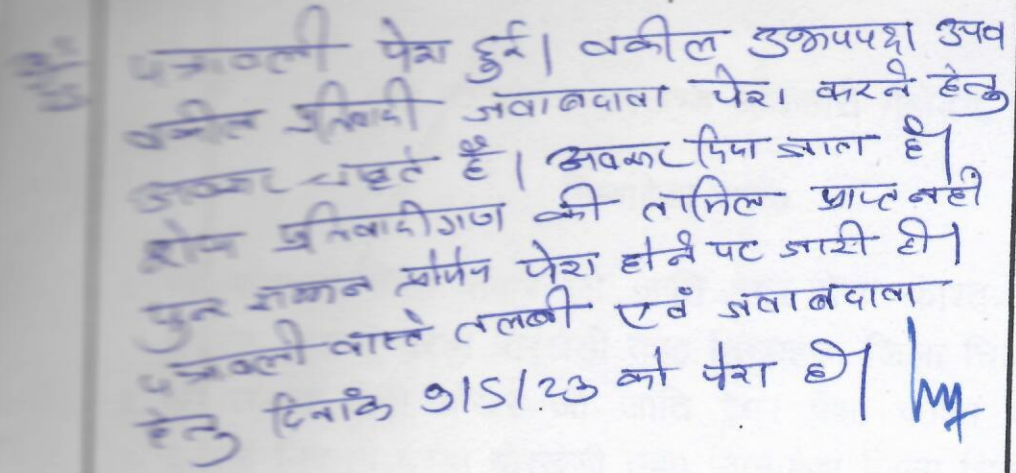 पत्रावली पेश हुई। वकील उभयपक्ष उपव
वकील प्रतिवादी जवाबदावा पेश करने हेतु
अवसर चाहते हैं। अवसर दिया जाता है।
शेष प्रतिवादीगण की तामिल प्राप्त नही
पुनः सम्मन पेश होने पर जारी हो।
पत्रावली वास्ते तलबी एवं जवाबदावा
हेतु दिनांक 9/5/23 को पेश हो।